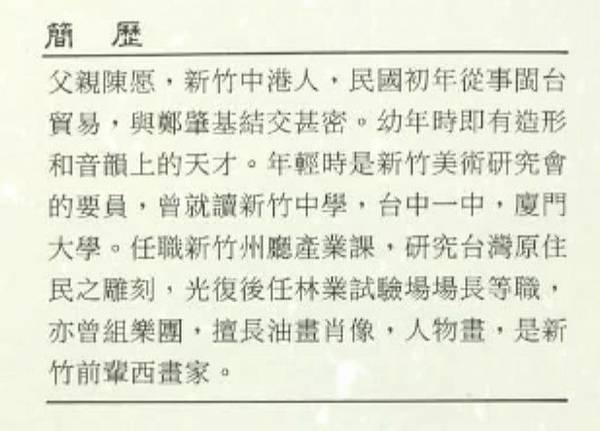 簡歷
父親陳愿，新竹中港人，民國初年從事閩台
貿易，與鄭肇基結交甚密。幼年時即有造形
和音韻上的天才。年輕時是新竹美術研究會
的要員，曾就讀新竹中學，台中一中，廈門
大學。任職新竹州廳產業課，研究台灣原住
民之雕刻，光復後任林業試驗場場長等職，
亦曾組樂團，擅長油畫肖像，人物畫，是新
竹前輩西畫家。